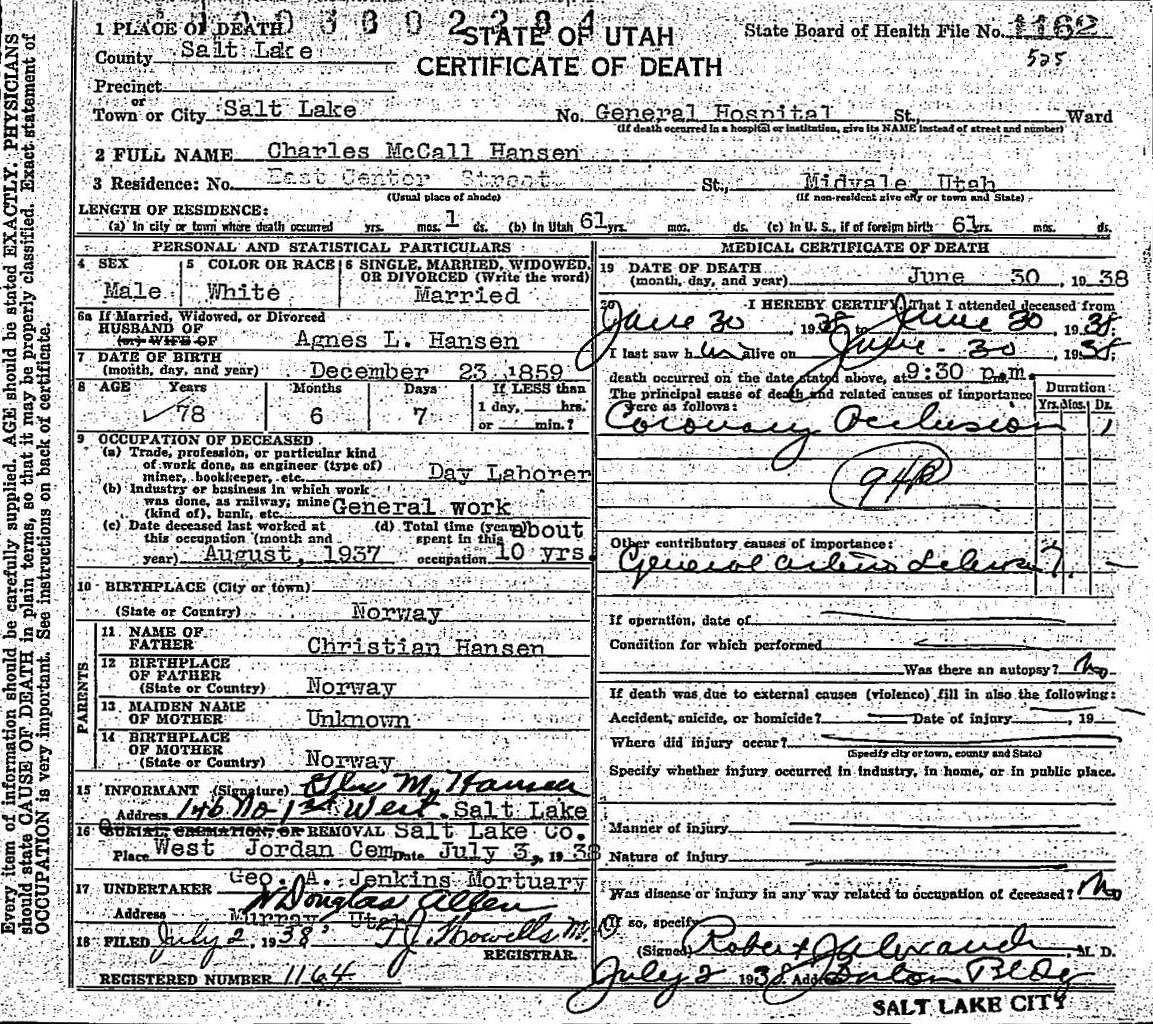 Every item of information should be carefully supplied. AGE should be stated EXACTLY, PHYSICIANS
should state CAUSE OF DEATH in plain terms, so that it may be properly classified. Exact statement of
OCCUPATION is very important. See instructions on back of certificate.
1 PLACE OF DEATH
County Salt Lake
Precinct
or
Town or City Salt Lake
STATE OF UTAH
CERTIFICATE OF DEATH
State Board of Health File No. 1162
525
No. General Hospital St., Ward
(If death occurred in a hospital or institution, give its NAME instead of street and number)
2 FULL NAME Charles McCall Hansen
3 Residence: No. East Center Street St., Midvale, Utah
(Usual place of abode) (If non-resident give city or town and State)
LENGTH OF RESIDENCE:
(a) In city or town where death occurred yrs. mos. 1 ds. (b) In Utah 61 yrs. mos. ds. (c) In U. S., if of foreign birth 61 yrs. mos. ds.
PERSONAL AND STATISTICAL PARTICULARS
4 SEX
Male
5 COLOR OR RACE
White
6 SINGLE, MARRIED, WIDOWED,
OR DIVORCED (Write the word)
Married
6a If Married, Widowed, or Divorced
HUSBAND OF
(or) WIFE OF Agnes L. Hansen
7 DATE OF BIRTH
(month, day, and year) December 23, 1859
8 AGE Years Months Days If LESS than
78 6 7 1 day, hrs.
or min.?
9 OCCUPATION OF DECEASED
(a) Trade, profession, or particular kind
of work done, as engineer (type of)
miner, bookkeeper, etc. Day Laborer
(b) Industry or business in which work
was done, as railway, mine
(kind of), bank, etc. General work
(c) Date deceased last worked at
this occupation (month and
year) August, 1937
(d) Total time (years) about
spent in this
occupation 10 yrs.
10 BIRTHPLACE (City or town)
(State or Country) Norway
PARENTS
11 NAME OF
FATHER Christian Hansen
12 BIRTHPLACE
OF FATHER
(State or Country) Norway
13 MAIDEN NAME
OF MOTHER Unknown
14 BIRTHPLACE
OF MOTHER
(State or Country) Norway
15 INFORMANT (Signature) M. Hansen
Address 146 No 1st West. Salt Lake
16 BURIAL, CREMATION, OR REMOVAL Salt Lake Co.
Place West Jordan Cem Date July 3, 1938
17 UNDERTAKER Geo. A. Jenkins Mortuary
Douglas Allen
Address Murray, Utah
18 FILED July 2, 1938,
REGISTRAR
REGISTERED NUMBER 1164
MEDICAL CERTIFICATE OF DEATH
19 DATE OF DEATH
(month, day, and year) June 30, 1938
20 I HEREBY CERTIFY, That I attended deceased from
June 30 1938 to June 30 1938
I last saw him alive on June 30 1938
death occurred on the date stated above, at 9:30 p.m.
The principal cause of death and related causes of importance
were as follows:
Duration
Yrs. Mos. Ds.
Coronary Occlusion 1
94B
Other contributory causes of importance:
General arterio Sclerosis ?
If operation, date of
Condition for which performed
Was there an autopsy? No
If death was due to external causes (violence) fill in also the following:
Accident, suicide, or homicide? Date of injury , 19
Where did injury occur?
(Specify city or town, county and State)
Specify whether injury occurred in industry, in home, or in public place.
Manner of injury
Nature of injury
Was disease or injury in any way related to occupation of deceased? No
If so, specify
(Signed) Robert J Alexander, M. D.
July 2 1938 Address Boston Bldg
SALT LAKE CITY